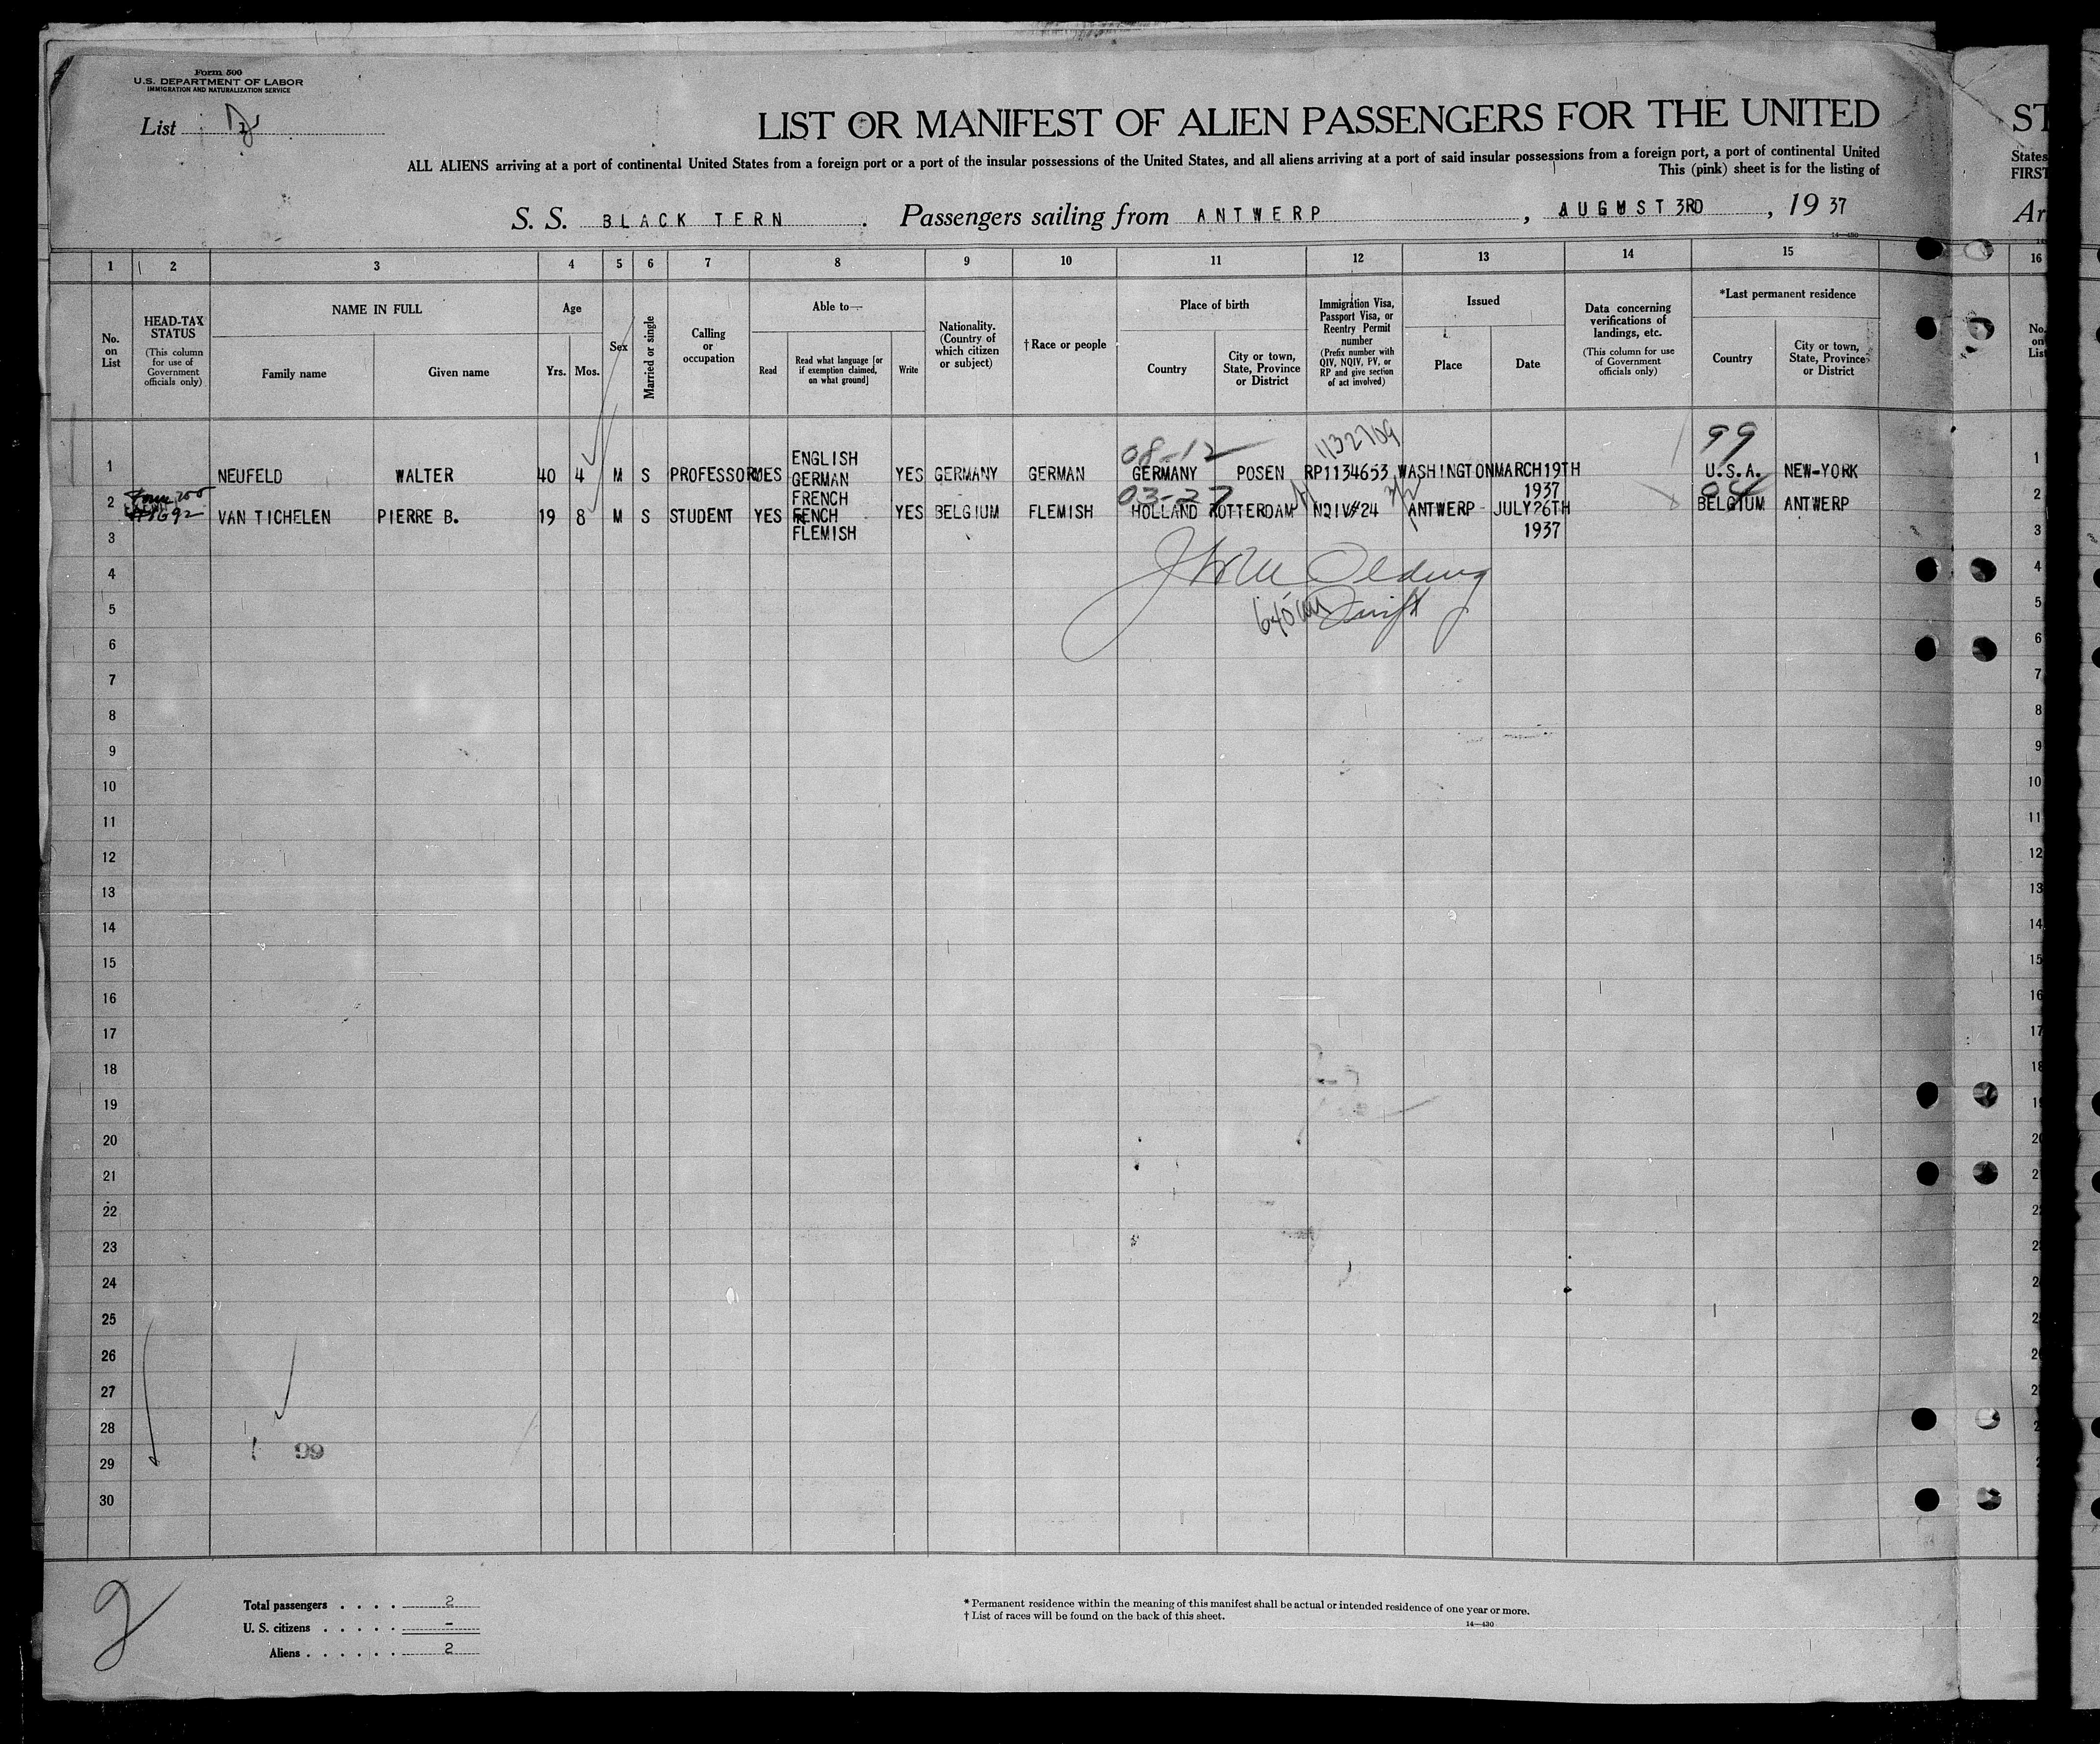 Form 500
U.S. DEPARTMENT OF LABOR
IMMIGRATION AND NATURALIZATION SERVICE
List 2
LIST OR MANIFEST OF ALIEN PASSENGERS FOR THE UNITED ST
ALL ALIENS arriving at a port of continental United States from a foreign port or a port of the insular possessions of the United States, and all aliens arriving at a port of said insular possessions from a foreign port, a port of continental United States
This (pink) sheet is for the listing of FIRST
S. S. BLACK TERN . Passengers sailing from ANTWERP , AUGUST 3RD , 19 37 Ar
14—430
1 2 3 4 5 6 7 8 9 10 11 12 13 14 15 16
No. on List
HEAD-TAX STATUS
(This column for use of Government officials only)
NAME IN FULL
Family name
Given name
Age
Yrs. Mos.
Sex
Married or single
Calling or occupation
Able to—
Read
Read what language [or if exemption claimed, on what ground]
Write
Nationality. (Country of which citizen or subject)
† Race or people
Place of birth
Country
City or town, State, Province or District
Immigration Visa, Passport Visa, or Reentry Permit number
(Prefix number with QIV, NQIV, PV, or RP and give section of act involved)
Issued
Place
Date
Data concerning verifications of landings, etc.
(This column for use of Government officials only)
*Last permanent residence
Country
City or town, State, Province or District
No. on List
08-12 1132709 99
1 NEUFELD WALTER 40 4 M S PROFESSOR YES ENGLISH GERMAN FRENCH YES GERMANY GERMAN GERMANY POSEN RP1134653 WASHINGTON MARCH19TH 1937 U.S.A. NEW-YORK 1
03-27
2 VAN TICHELEN PIERRE B. 19 8 M S STUDENT YES FENCH FLEMISH YES BELGIUM FLEMISH HOLLAND ROTTERDAM NQIV#24 ANTWERP JULY26TH 1937 BELGIUM ANTWERP 2
3 3
4 4
5 5
6 6
7 7
8 8
9 9
10 10
11 11
12 12
13 13
14 14
15 15
16 16
17 17
18 18
19 19
20 20
21 2
22 2
23 2
24 2
25 2
26 2
27 2
28 2
99
29 2
30
2
Total passengers . . . . 2
U. S. citizens . . . . . –
Aliens . . . . . . 2
* Permanent residence within the meaning of this manifest shall be actual or intended residence of one year or more.
† List of races will be found on the back of this sheet.
14—430